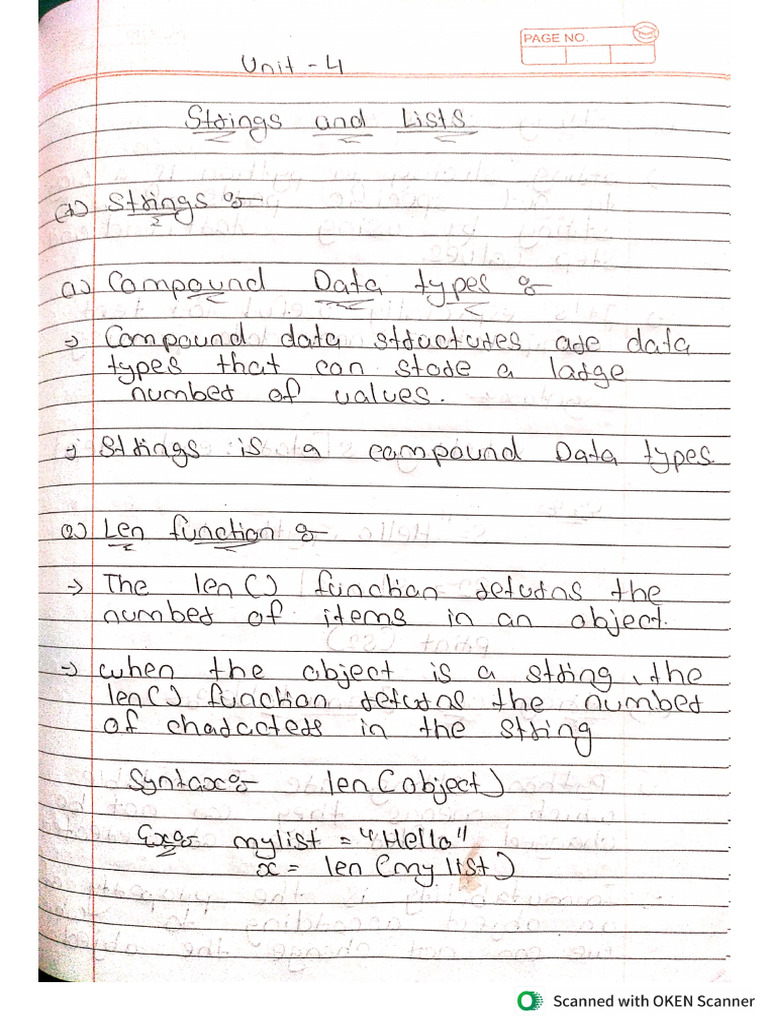 PAGE NO.
Unit - 4
Strings and Lists
(1) Strings :-
(1) Compound Data types :-
→ Compound data structures are data
types that can store a large
number of values.
→ Strings is a compound Data types.
(2) Len function :-
→ The len() function returns the
number of items in an object.
→ when the object is a string, the
len() function returns the number
of characters in the string
Syntax :- len(object)
Ex :- mylist = "Hello"
x = len(mylist)
Scanned with OKEN Scanner